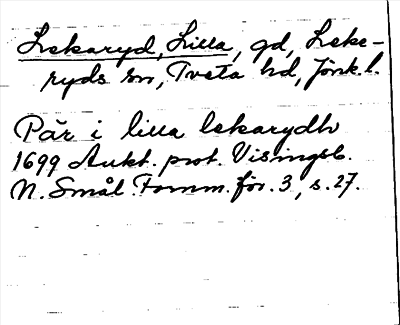 Lekaryd, Lilla, gd, Leke-
ryds sn, Tveta hd, Jönk. l.
Pär i lilla lekarydh
1699 Aukt. prot. Visingsb.
N. Smål. Fornm. för. 3, s. 27.